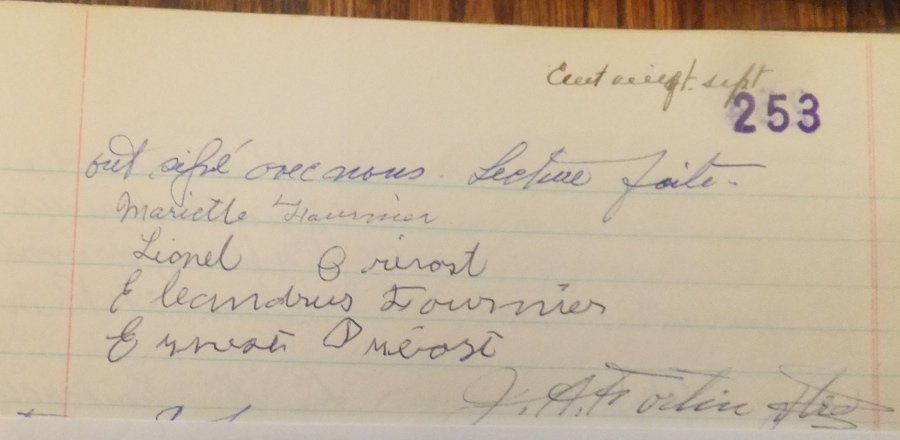 Cent vingt-sept
253
ont signé avec nous. Lecture faite.
Mariette Fournier
Lionel Prévost
Eleandrus Fournier
Ernest Prévost
J. A. Fortin Ptre